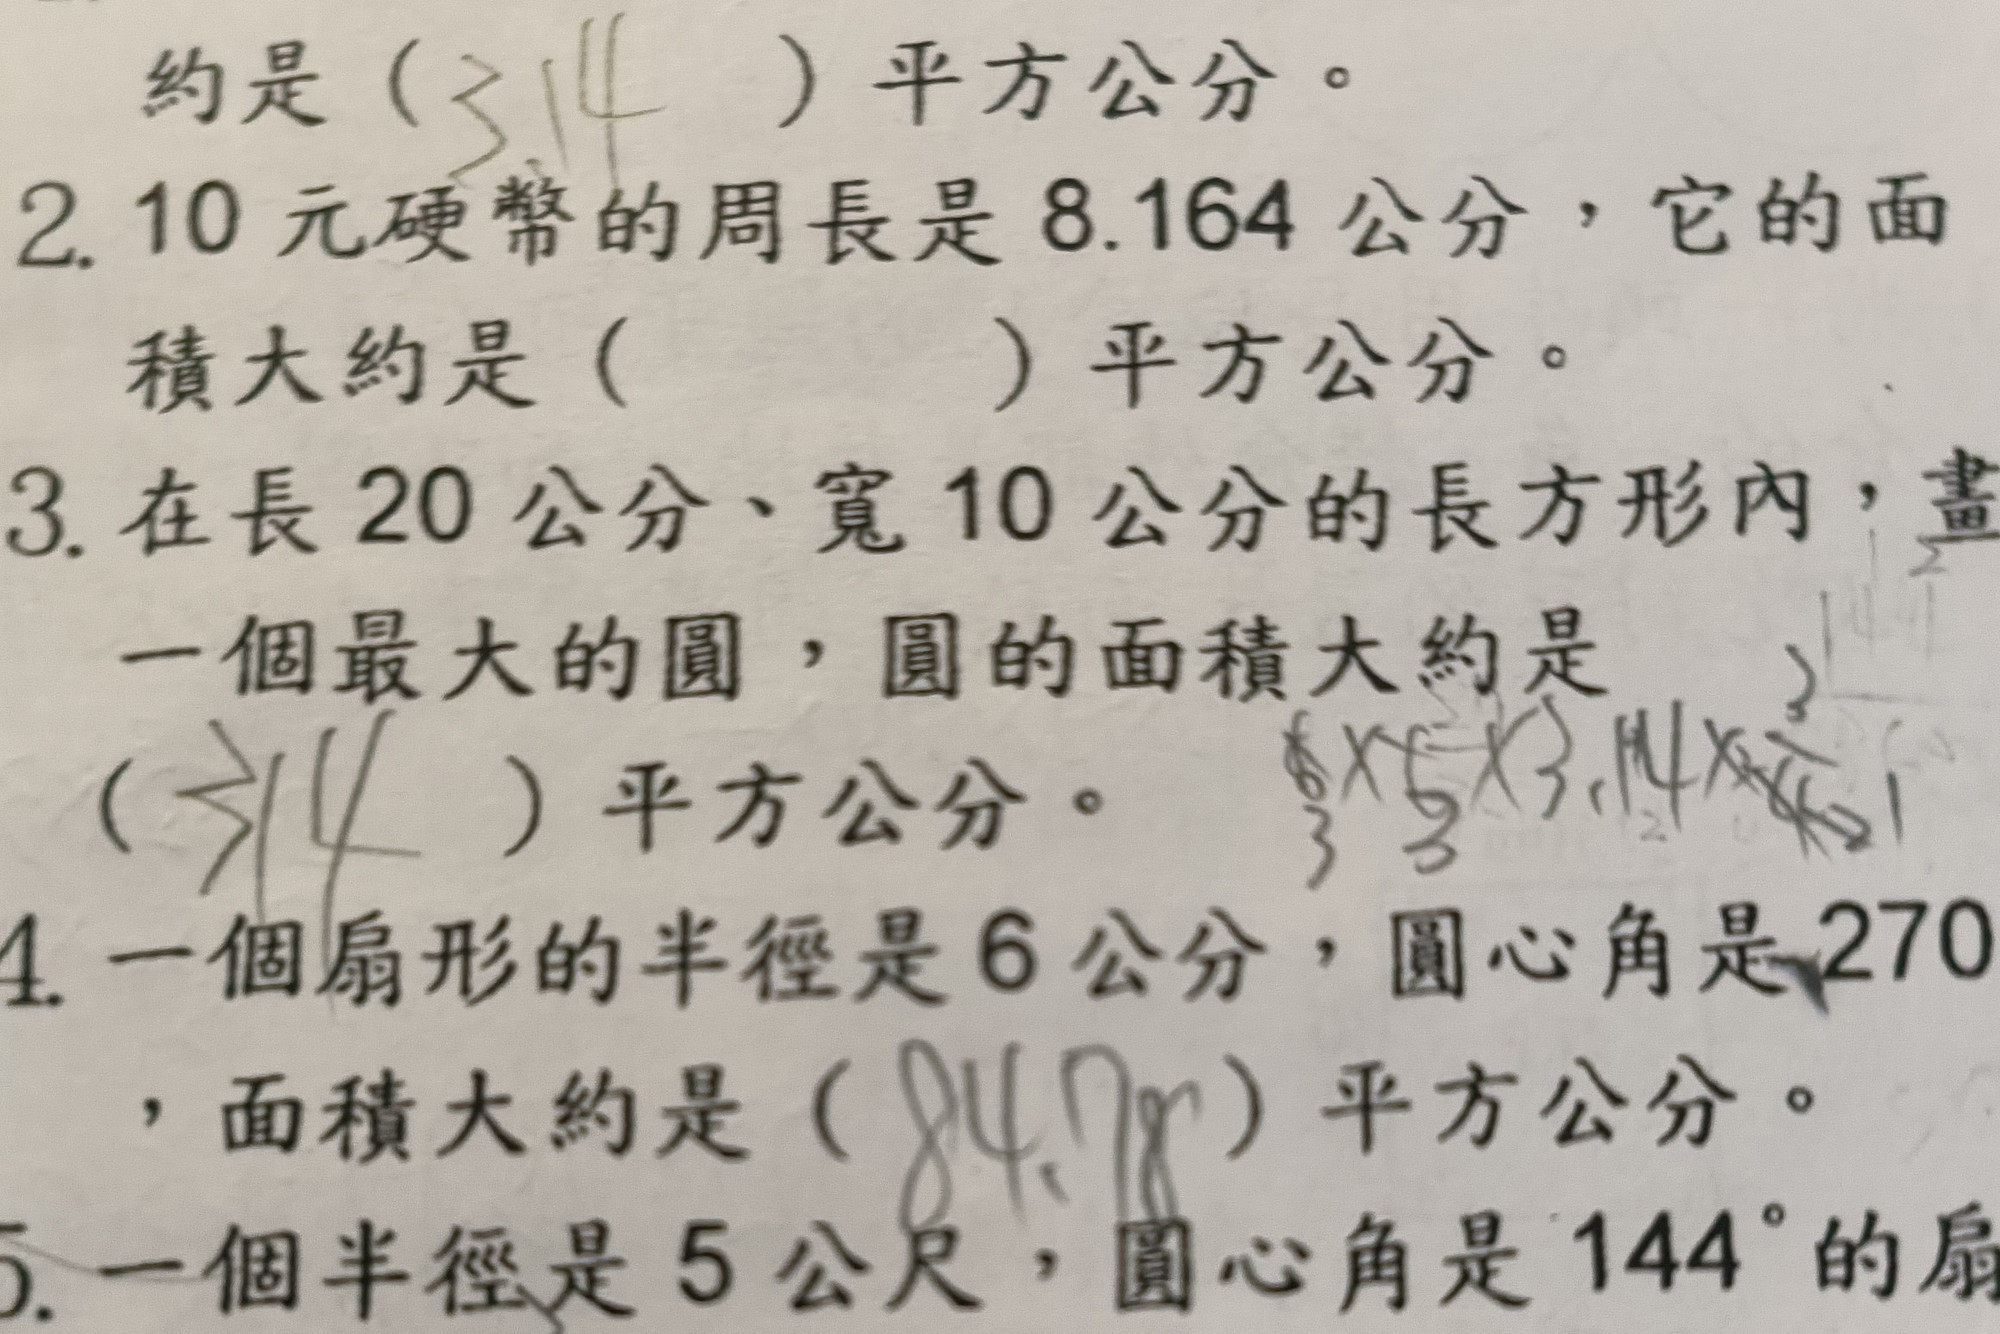 約是（314）平方公分。
2. 10 元硬幣的周長是 8.164 公分，它的面
積大約是（　　　）平方公分。
3. 在長 20 公分、寬 10 公分的長方形內，畫
一個最大的圓，圓的面積大約是
（314）平方公分。
4. 一個扇形的半徑是 6 公分，圓心角是 270
，面積大約是（84.78）平方公分。
5. 一個半徑是 5 公尺，圓心角是 144°的扇